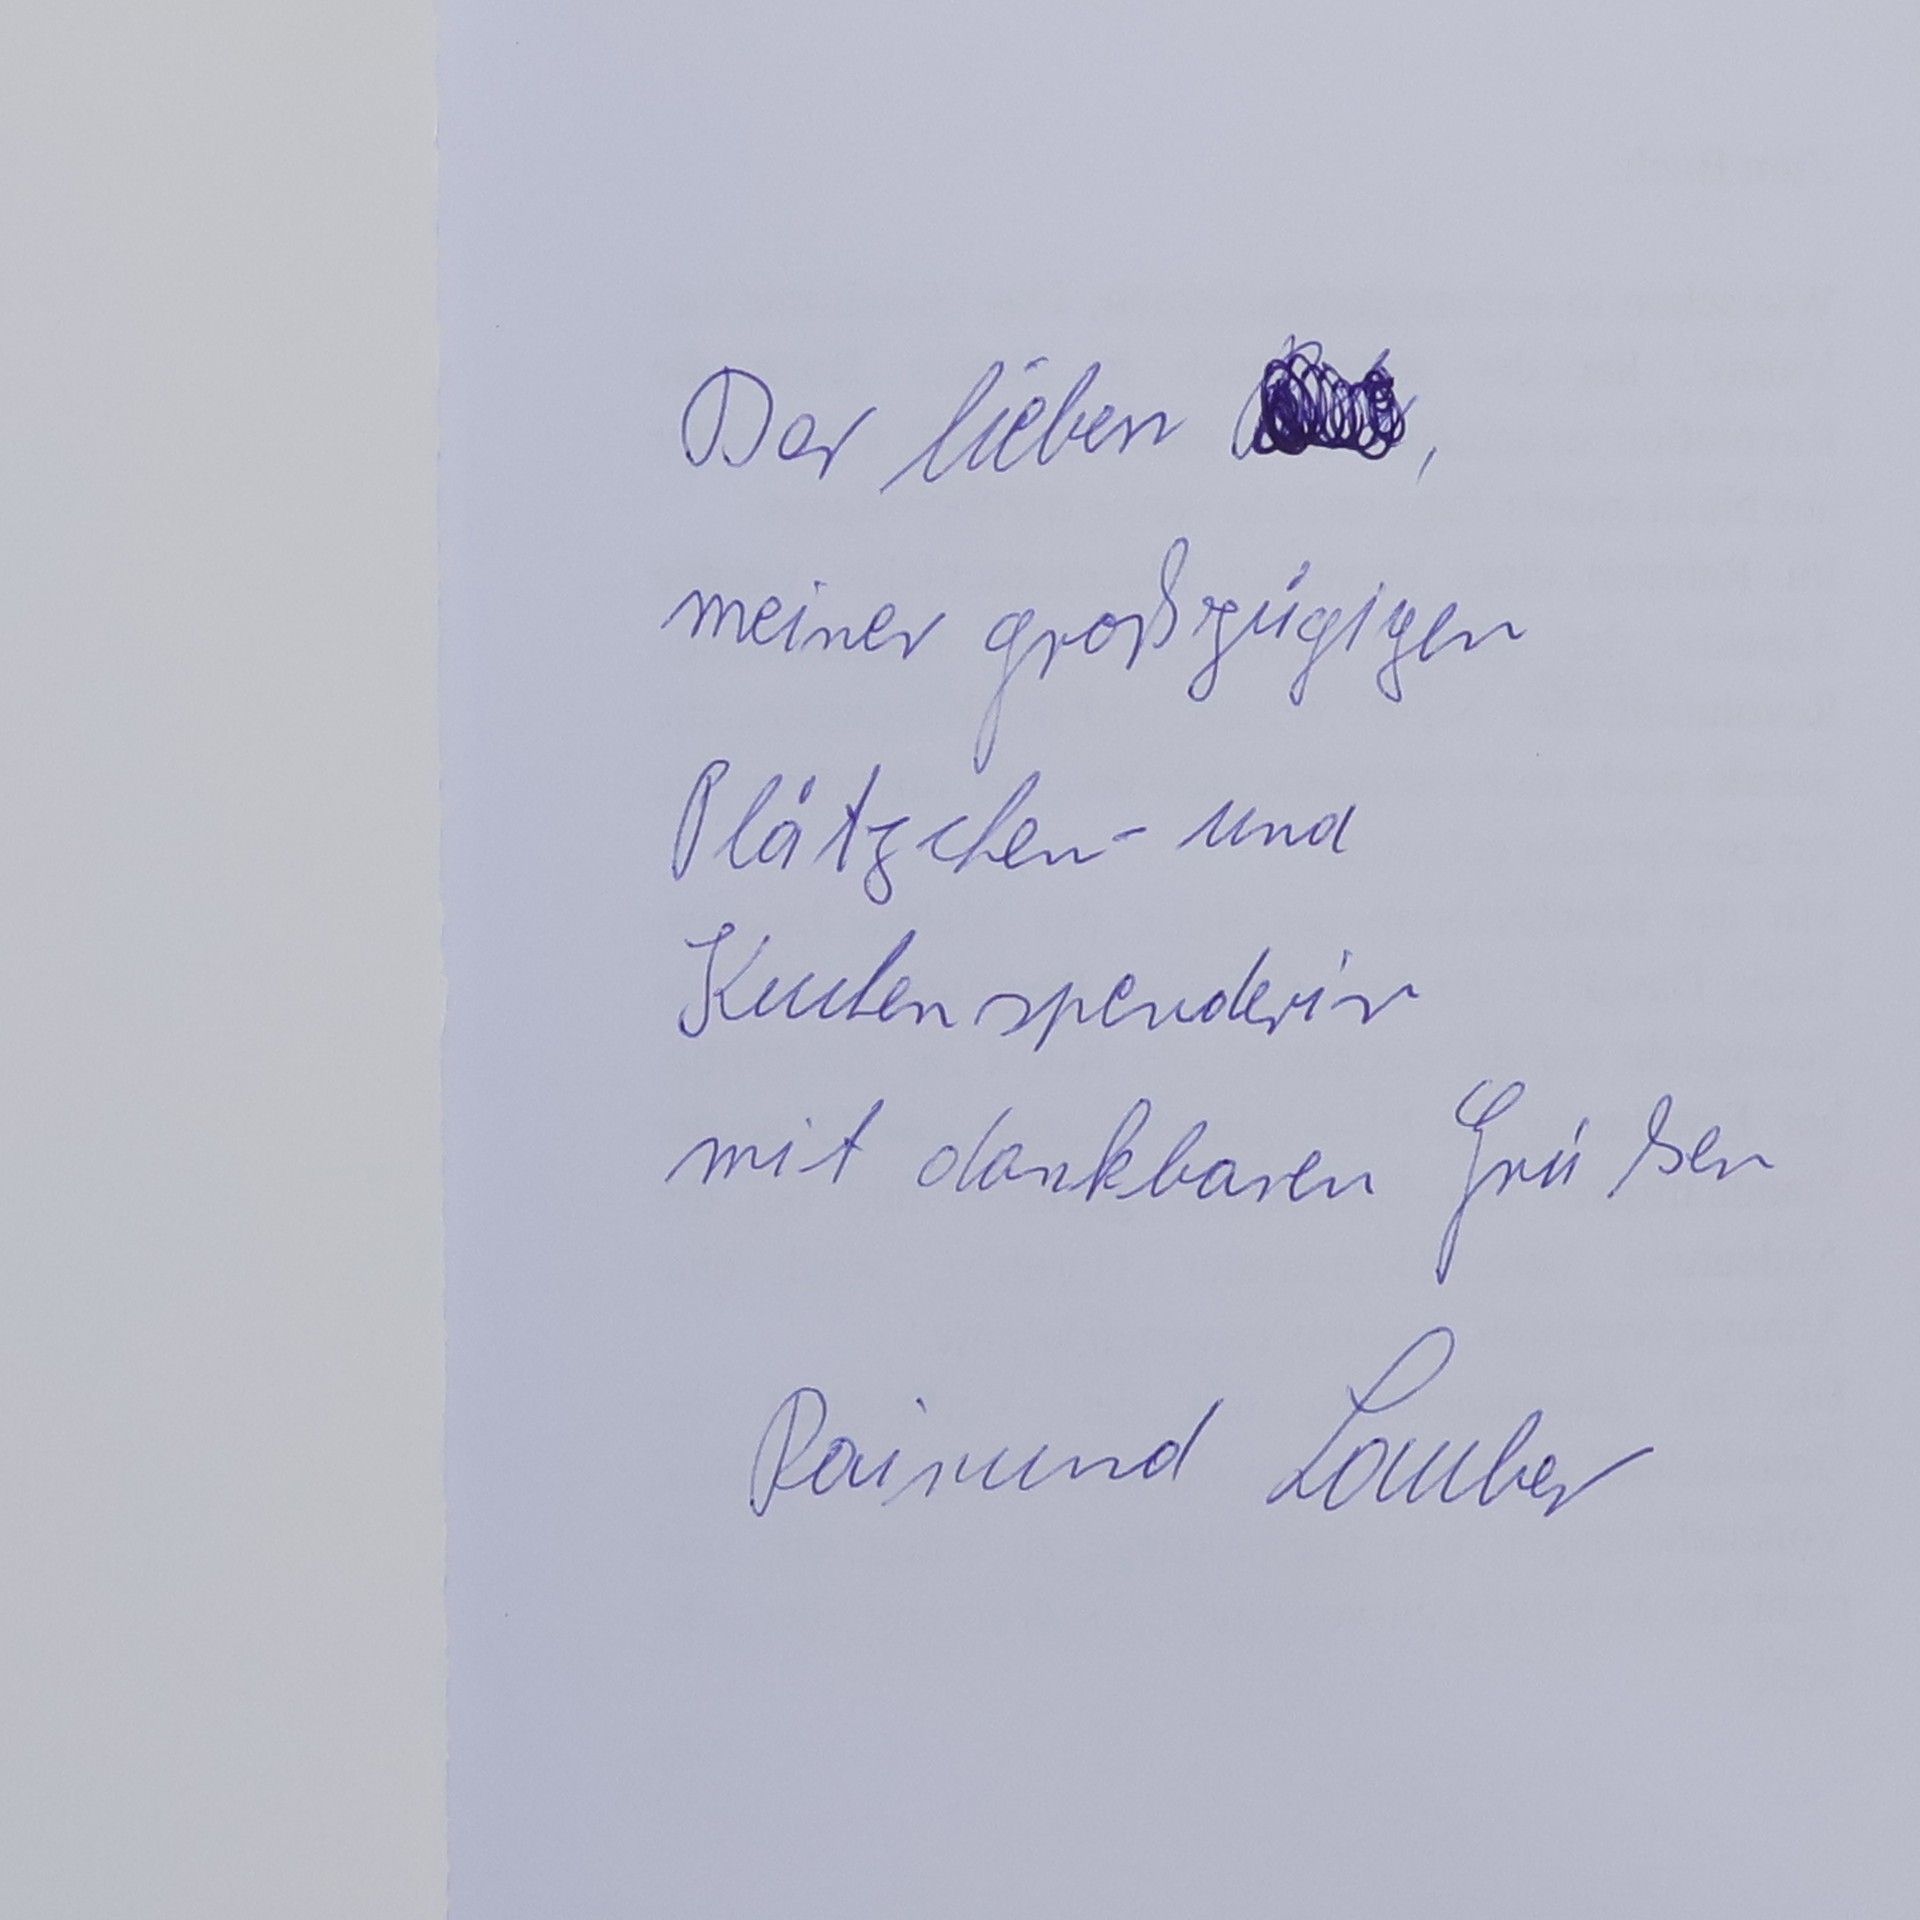 Der lieben ,
meiner großzügigen
Plätzchen- und
Kuchenspenderin
mit dankbaren Grüßen
Raimund Lauber